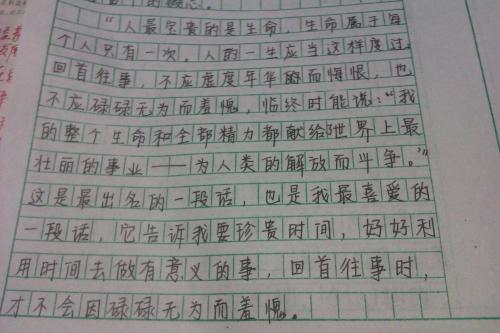 的概念。
“人最宝贵的是生命，生命属于每
个人只有一次。人的一生应当这样度过，
回首往事，不应虚度年华而悔恨，也
不应碌碌无为而羞愧，临终时能说：“我
的整个生命和全部精力都献给世界上最
壮丽的事业——为人类的解放而斗争。”
这是最出名的一段话，也是我最喜爱的
一段话，它告诉我要珍贵时间，好好利
用时间去做有意义的事，回首往事时，
才不会因碌碌无为而羞愧。